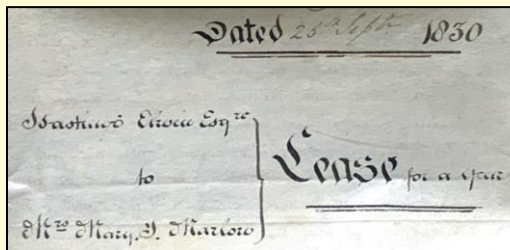 Dated 28th Septr 1830
Hastings Elwin Esqre
to
Mrs Mary, I. Marlow
Lease for a year